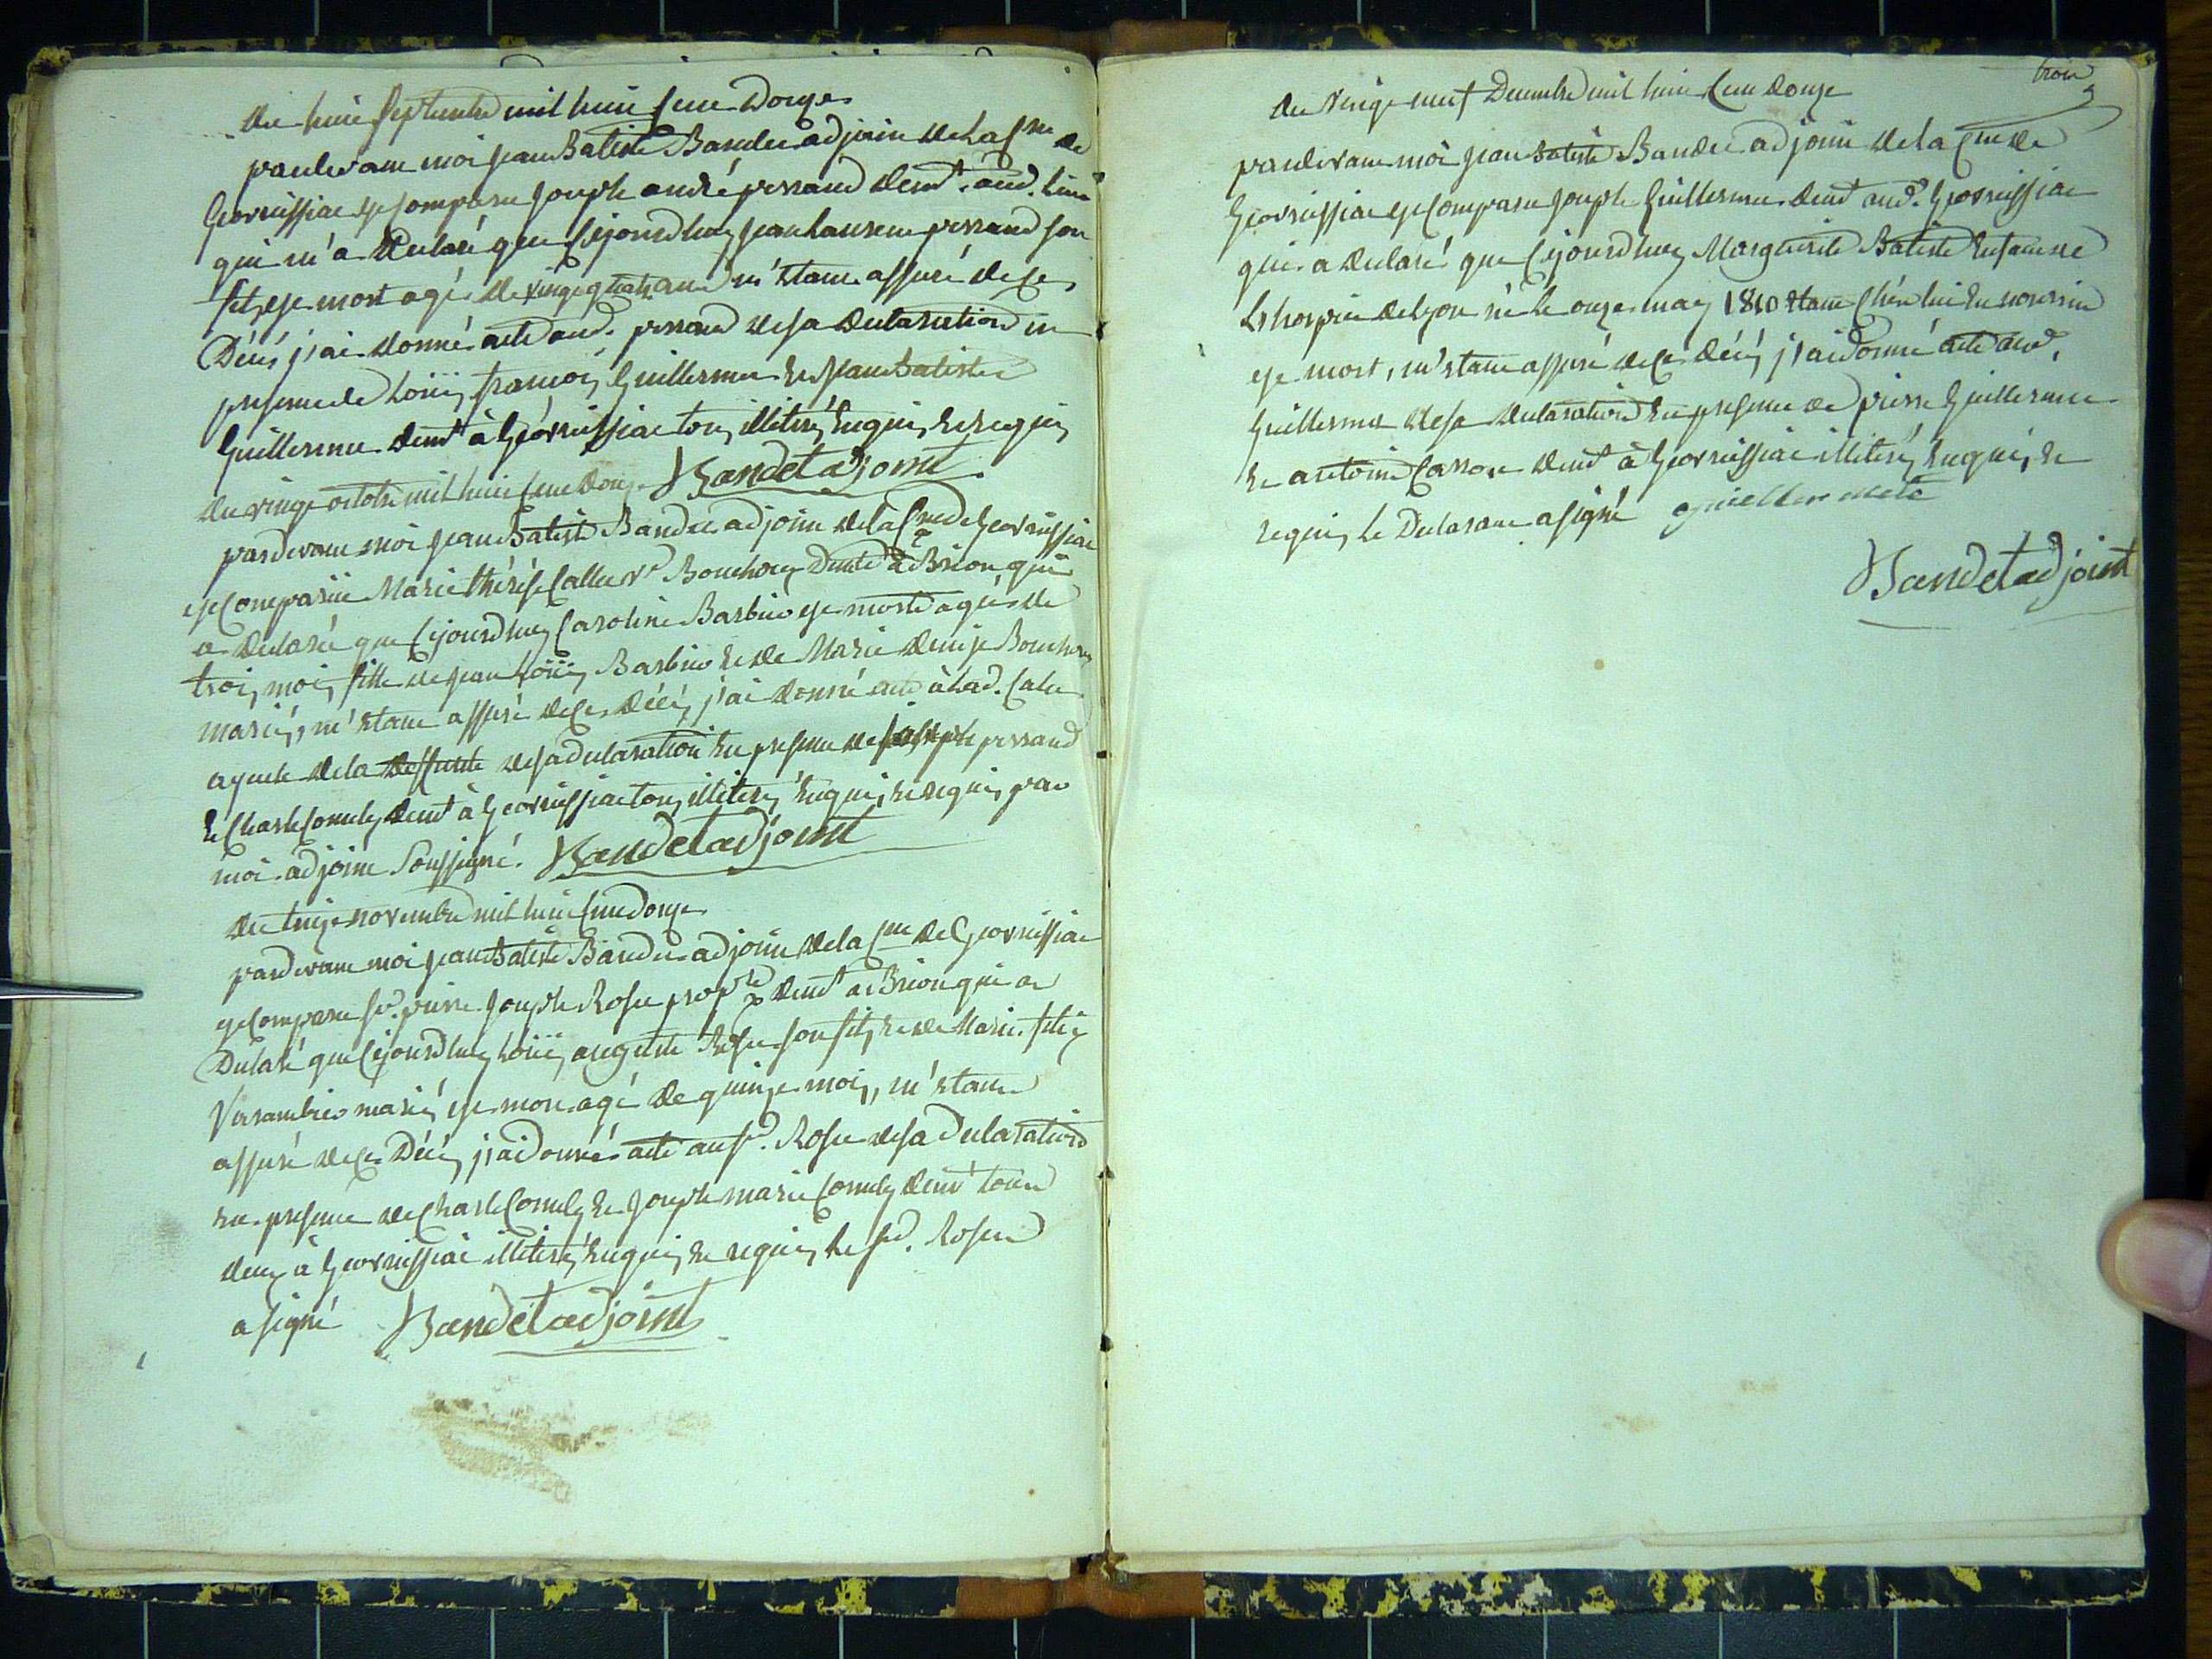 Du huit septembre mil huit cent douze
pardevant moi jean Batiste Bandet adjoint de la Cne de
Geovreissiat est comparu joseph andré perraud demt. aud. lieu
qui m'a declaré que cejourdhuy jean laurent perraud son
fils est mort agé de vingt quatre ans m'etant assuré de ce
Décés j'ai donné acte aud. perraud de sa declaration en
presence de Loüis françois Guillermet et jean Batiste
Guillermet demt à Géovreissiat tous illitérés enquis et requis
Bandet adjoint
Du vingt octobre mil huit cent douze
pardevant moi jean Batiste Bandet adjoint de la Cne de Geovreissiat
est comparüe Marie thérése Callet ve Bouchoux Demte à Brion qui
a declaré que cejourdhuy Caroline Barbier est morte agée de
trois mois fille de jean Loüis Barbier et de Marie denise Bouchoux
mariés, m'etant assuré de ce décés j'ai donné acte à lad. Calet
ayeule de la deffunte de sa declaration en presence de joseph perraud
et Charle Comuly demt à Geovreissiat tous illiterés enquis et requis par
moi adjoint soussigné. Bandet adjoint
Du treize novembre mil huit cent douze
pardevant moi jean Batiste Bandet adjoint de la Cne de Geovreissiat
est comparu sr. pierre joseph Roset propre demt a Brion qui a
Declaré que cejourdhuy Loüis auguste Roset son fils et de Marie
Varambier mariés est mort agé de quinze mois, m'etant
assuré de ce Décés j'ai donné acte au sr. Roset de sa declaration
en presence de Charle Comuly et joseph marie Comuly demt tous
deux à Geovreissiat illiterés enquis et requis le sr. Roset
a signé Bandet adjoint
trois
3
Du vingt neuf Decembre mil huit cent douze
pardevant moi jean Batiste Bandet adjoint de la Cne de
Geovreissiat est comparu joseph Guillermet demt aud. Geovreissiat
qui a declaré que cejourdhuy Marguerite Batiste enfant de
L'hospice de Lyon né le onze may 1810 etant chéz lui en nourrice
est mort, m'etant assuré de ce décés j'ai donné acte aud.
Guillermet de sa declaration en presence de pierre Guillermet
et antoine Carron demt à Geovreissiat illiterés enquis et
requis le Declarant a signé guillermete
Bandet adjoint